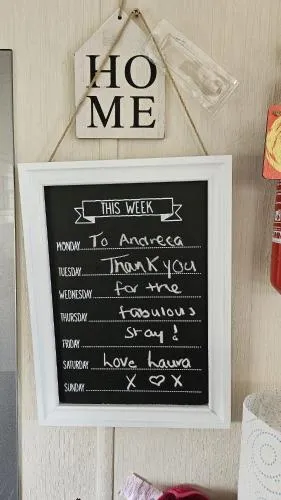 HO
ME
THIS WEEK
MONDAY To Andreea
TUESDAY Thank you
WEDNESDAY for the
THURSDAY fabulous
stay!
FRIDAY
SATURDAY Love Laura
SUNDAY X ♡ X